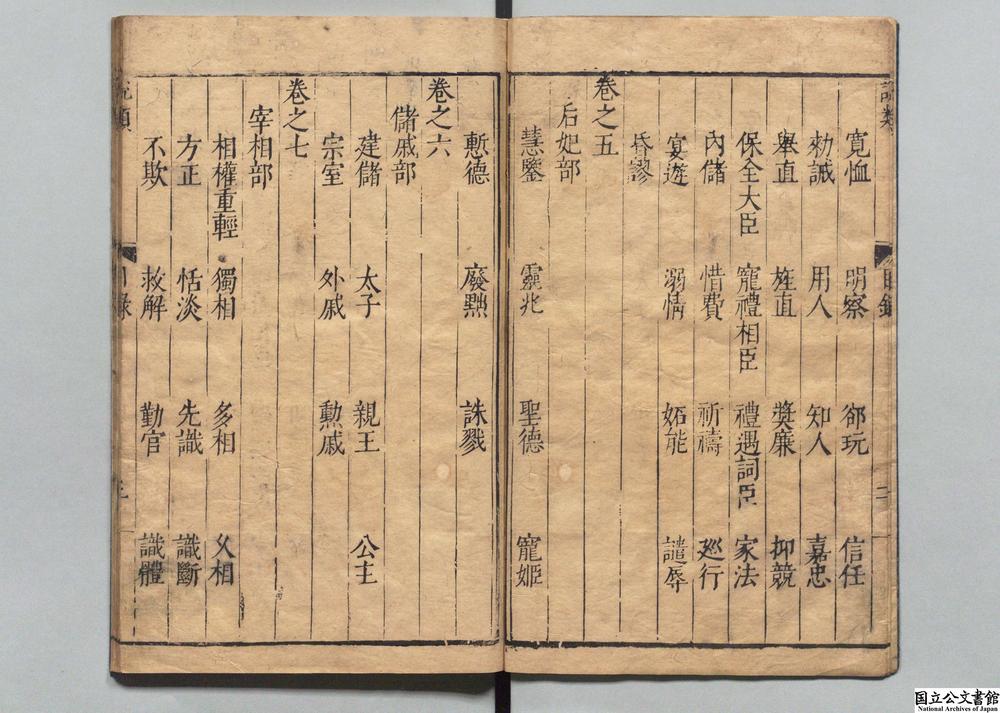 說類
目錄
二
寬恤 明察 郤玩 信任
勑誡 用人 知人 嘉忠
舉直 旌直 奬廉 抑競
保全大臣 寵禮相臣 禮遇詞臣 家法
內儲 惜費 祈禱 廵行
宴遊 溺情 妬能 譴辱
昏謬
卷之五
后妃部
慧鑒 靈兆 聖德 寵姬
慙德 廢黜 誅戮
卷之六
儲戚部
建儲 太子 親王 公主
宗室 外戚 勲戚
卷之七
宰相部
相權重輕 獨相 多相 久相
方正 恬淡 先識 識斷
不欺 救解 勤官 識體
說類
目錄
三
国立公文書館
National Archives of Japan